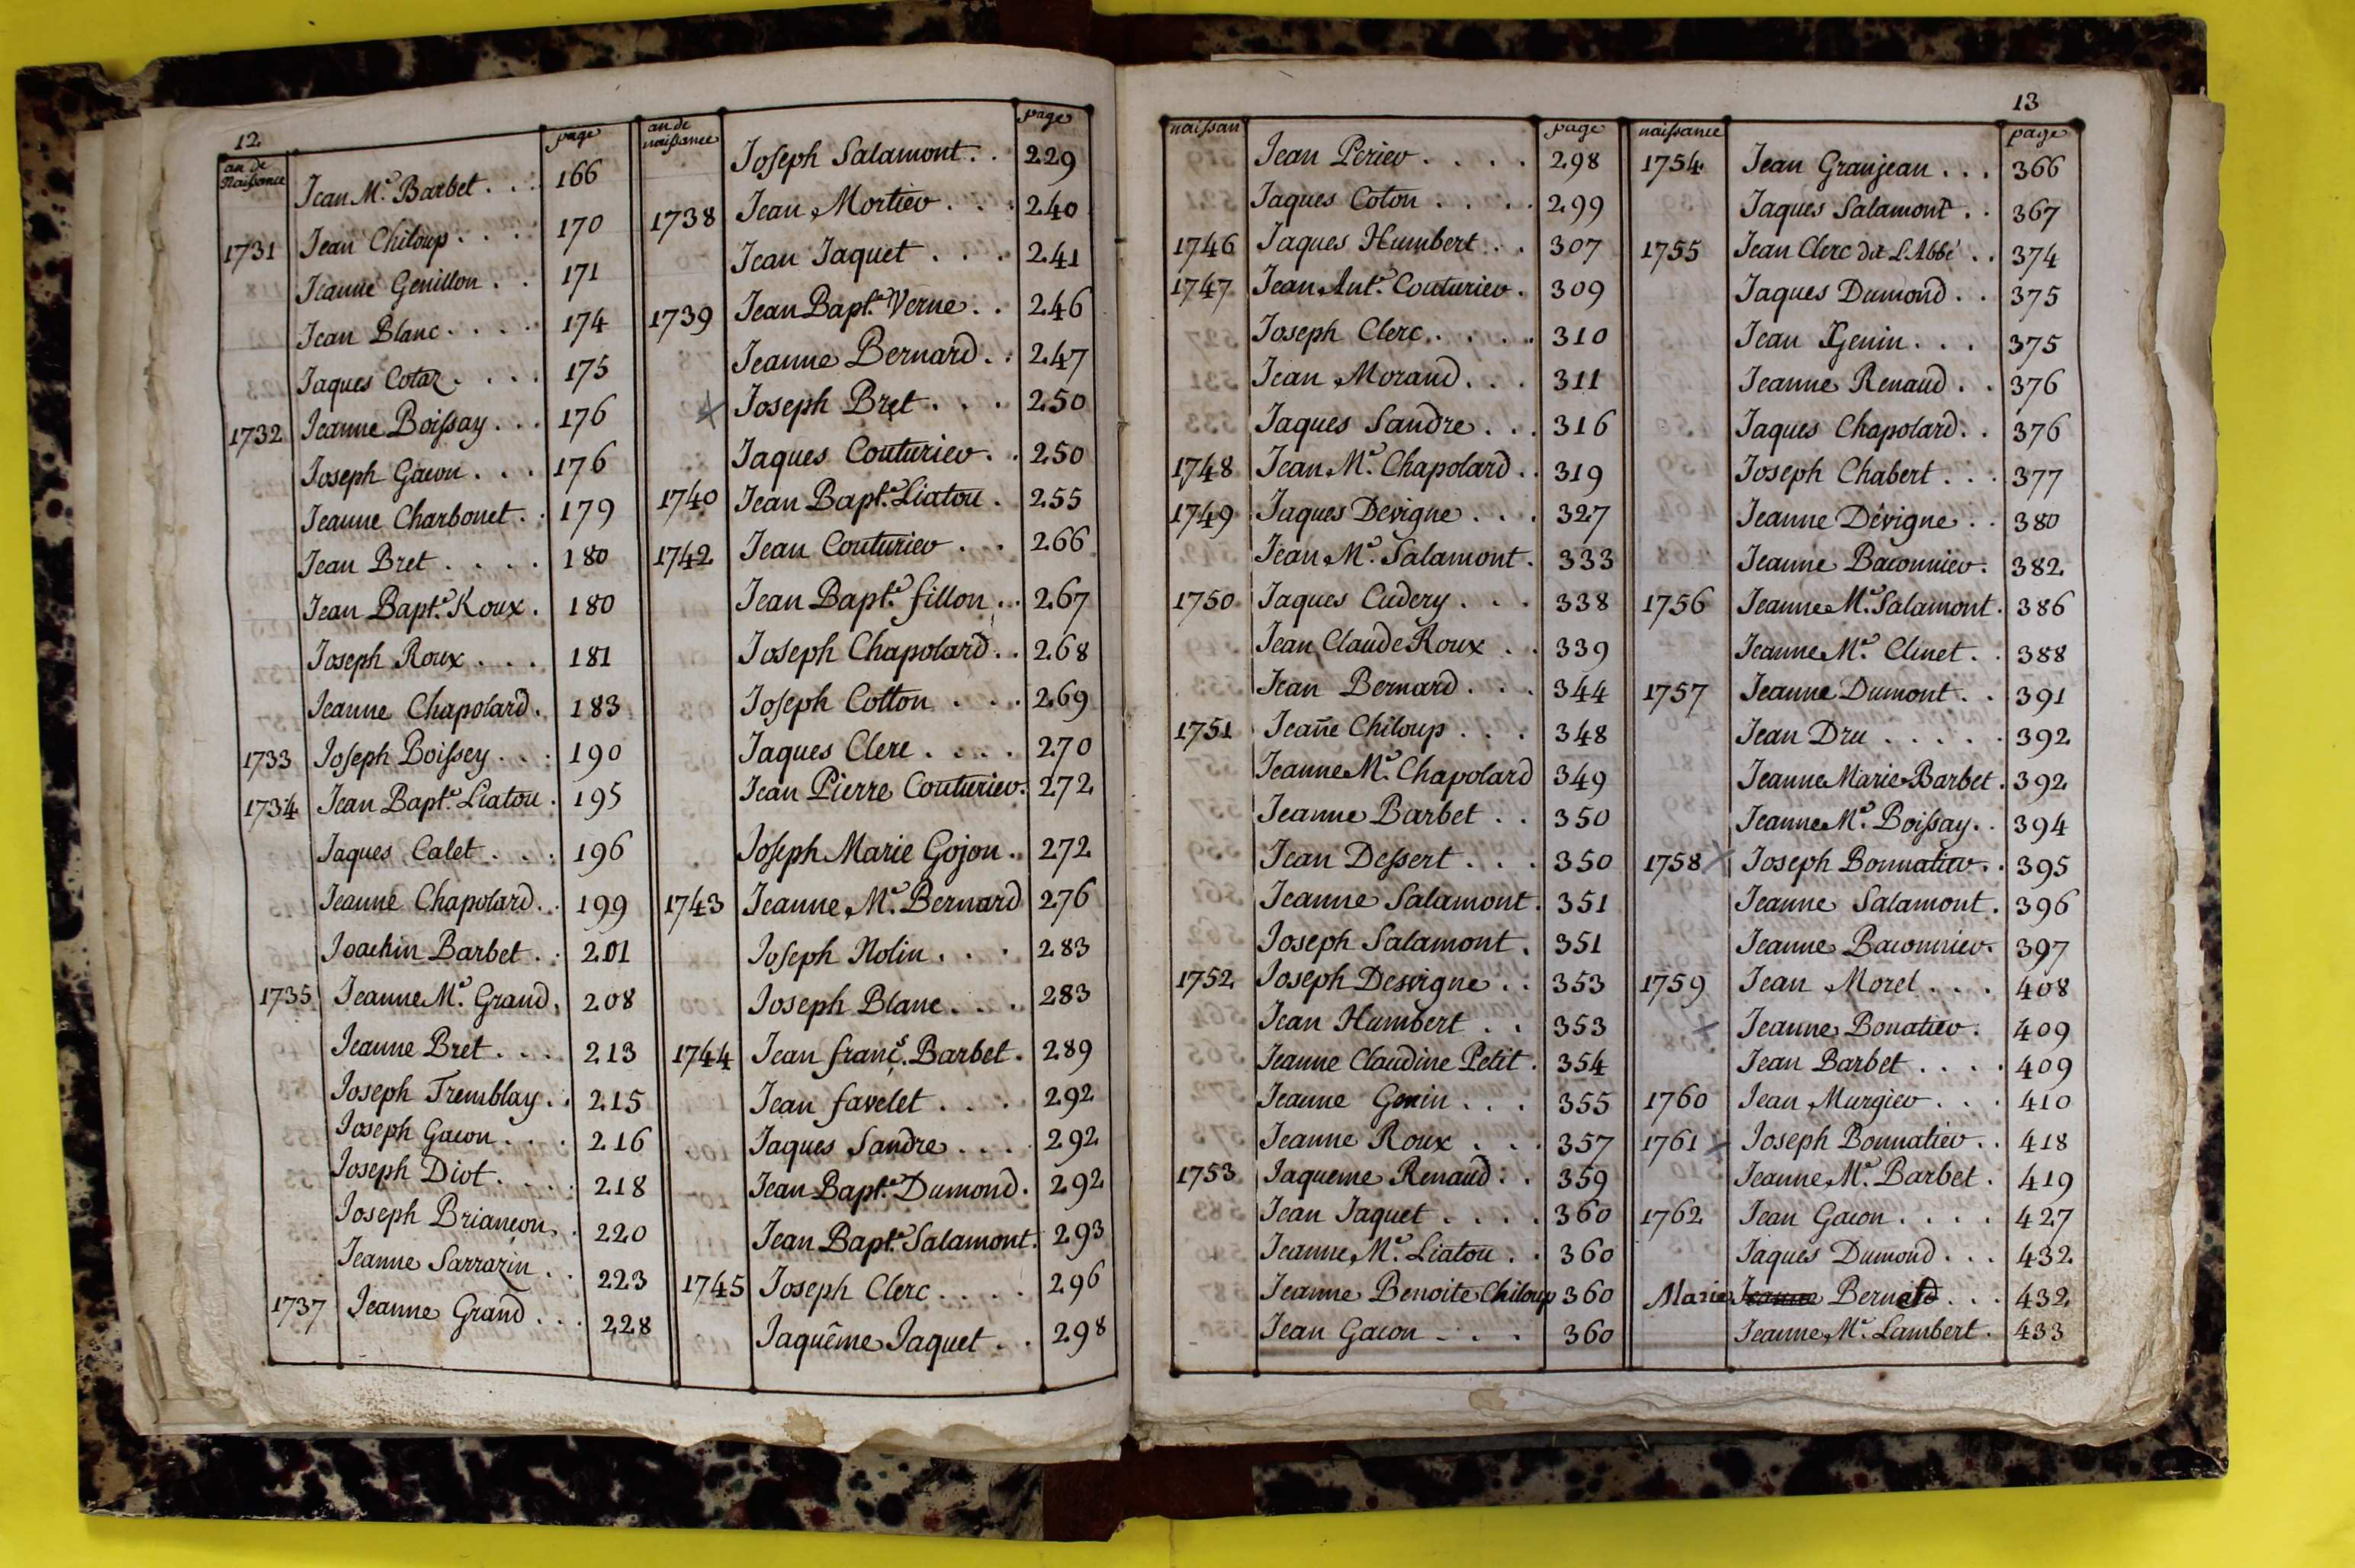 12
an de Naissance page
Jean M.e Barbet . . . 166
1731 Jean Chiloup . . . . 170
Jeanne Genillon . . 171
Jean Blanc . . . . 174
Jaques Cotaz . . . . 175
1732 Jeanne Boissay . . . 176
Joseph Gacon . . . 176
Jeanne Charbonet . . 179
Jean Bret . . . . 180
Jean Bapt.e Roux . 180
Joseph Roux . . . 181
Jeanne Chapolard . 183
1733 Joseph Boissey . . . 190
1734 Jean Bapt.e Liatou . 195
Jaques Calet . . . 196
Jeanne Chapolard . . 199
Joachin Barbet . . 201
1735 Jeanne M.e Grand . 208
Jeanne Bret . . . 213
Joseph Tremblay . . 215
Joseph Gacon . . . 216
Joseph Diot . . . . 218
Joseph Briancon . . 220
Jeanne Sarrazin . . 223
1737 Jeanne Grand . . . 228
an de naissance page
Joseph Salamont . . 229
1738 Jean Mortier . . . 240
Jean Jaquet . . . . 241
1739 Jean Bapt.e Verne . . 246
Jeanne Bernard . . 247
x Joseph Bret . . . 250
Jaques Couturier . . 250
1740 Jean Bapt.e Liatou . 255
1742 Jean Couturier . . . 266
Jean Bapt.e fillon . . 267
Joseph Chapolard . . 268
Joseph Cotton . . . 269
Jaques Clerc . . . . 270
Jean Pierre Couturier . 272
Joseph Marie Gojon . 272
1743 Jeanne M.e Bernard 276
Joseph Nolin . . . 283
Joseph Blanc . . . 283
1744 Jean franç.s Barbet . 289
Jean favelet . . . 292
Jaques Sandre . . . 292
Jean Bapt.e Dumond . 292
Jean Bapt.e Salamont . 293
1745 Joseph Clerc . . . . 296
Jaquême Jaquet . . 298
13
naissan page
Jean Perier . . . . 298
Jaques Coton . . . . 299
1746 Jaques Humbert . . 307
1747 Jean Ant.e Couturier . 309
Joseph Clerc . . . . 310
Jean Morand . . . 311
Jaques Sandre . . . 316
1748 Jean M.e Chapolard . . 319
1749 Jaques Devigne . . . 327
Jean M.e Salamont . 333
1750 Jaques Cudery . . . 338
Jean Claude Roux . . 339
Jean Bernard . . . 344
1751 Jeañe Chiloup . . . 348
Jeanne M.e Chapolard 349
Jeanne Barbet . . 350
Jean Dessert . . . 350
Jeanne Salamont . 351
Joseph Salamont . 351
1752 Joseph Desvigne . . 353
Jean Humbert . . 353
Jeanne Claudine Petit . 354
Jeanne Genin . . . 355
Jeanne Roux . . . 357
1753 Jaqueme Renaud . . 359
Jean Jaquet . . . . 360
Jeanne M.e Liatou . . 360
Jeanne Benoite Chiloup 360
Jean Gacon . . . 360
naissance page
1754 Jean Granjean . . . 366
Jaques Salamont . . 367
1755 Jean Clerc dit L'Abbé . . 374
Jaques Dumond . . 375
Jean Genin . . . 375
Jeanne Renaud . . 376
Jaques Chapolard . . 376
Joseph Chabert . . . 377
Jeanne Dévigne . . 380
Jeanne Baconnier . 382
1756 Jeanne M.e Salamont . 386
Jeanne M.e Clinet . . 388
1757 Jeanne Dumont . . 391
Jean Dru . . . . . 392
Jeanne Marie Barbet . 392
Jeanne M.e Boissay . . 394
1758 x Joseph Bonnatier . . 395
Jeanne Salamont . 396
Jeanne Baconnier . 397
1759 Jean Morel . . . 408
x Jeanne Bonatier . 409
Jean Barbet . . . . 409
1760 Jean Murgier . . . 410
1761 x Joseph Bonnatier . . 418
Jeanne M.e Barbet . 419
1762 Jean Gacon . . . . 427
Jaques Dumond . . . 432
Marie Jeanne Bernard . . . 432
Jeanne M.e Lambert . 433